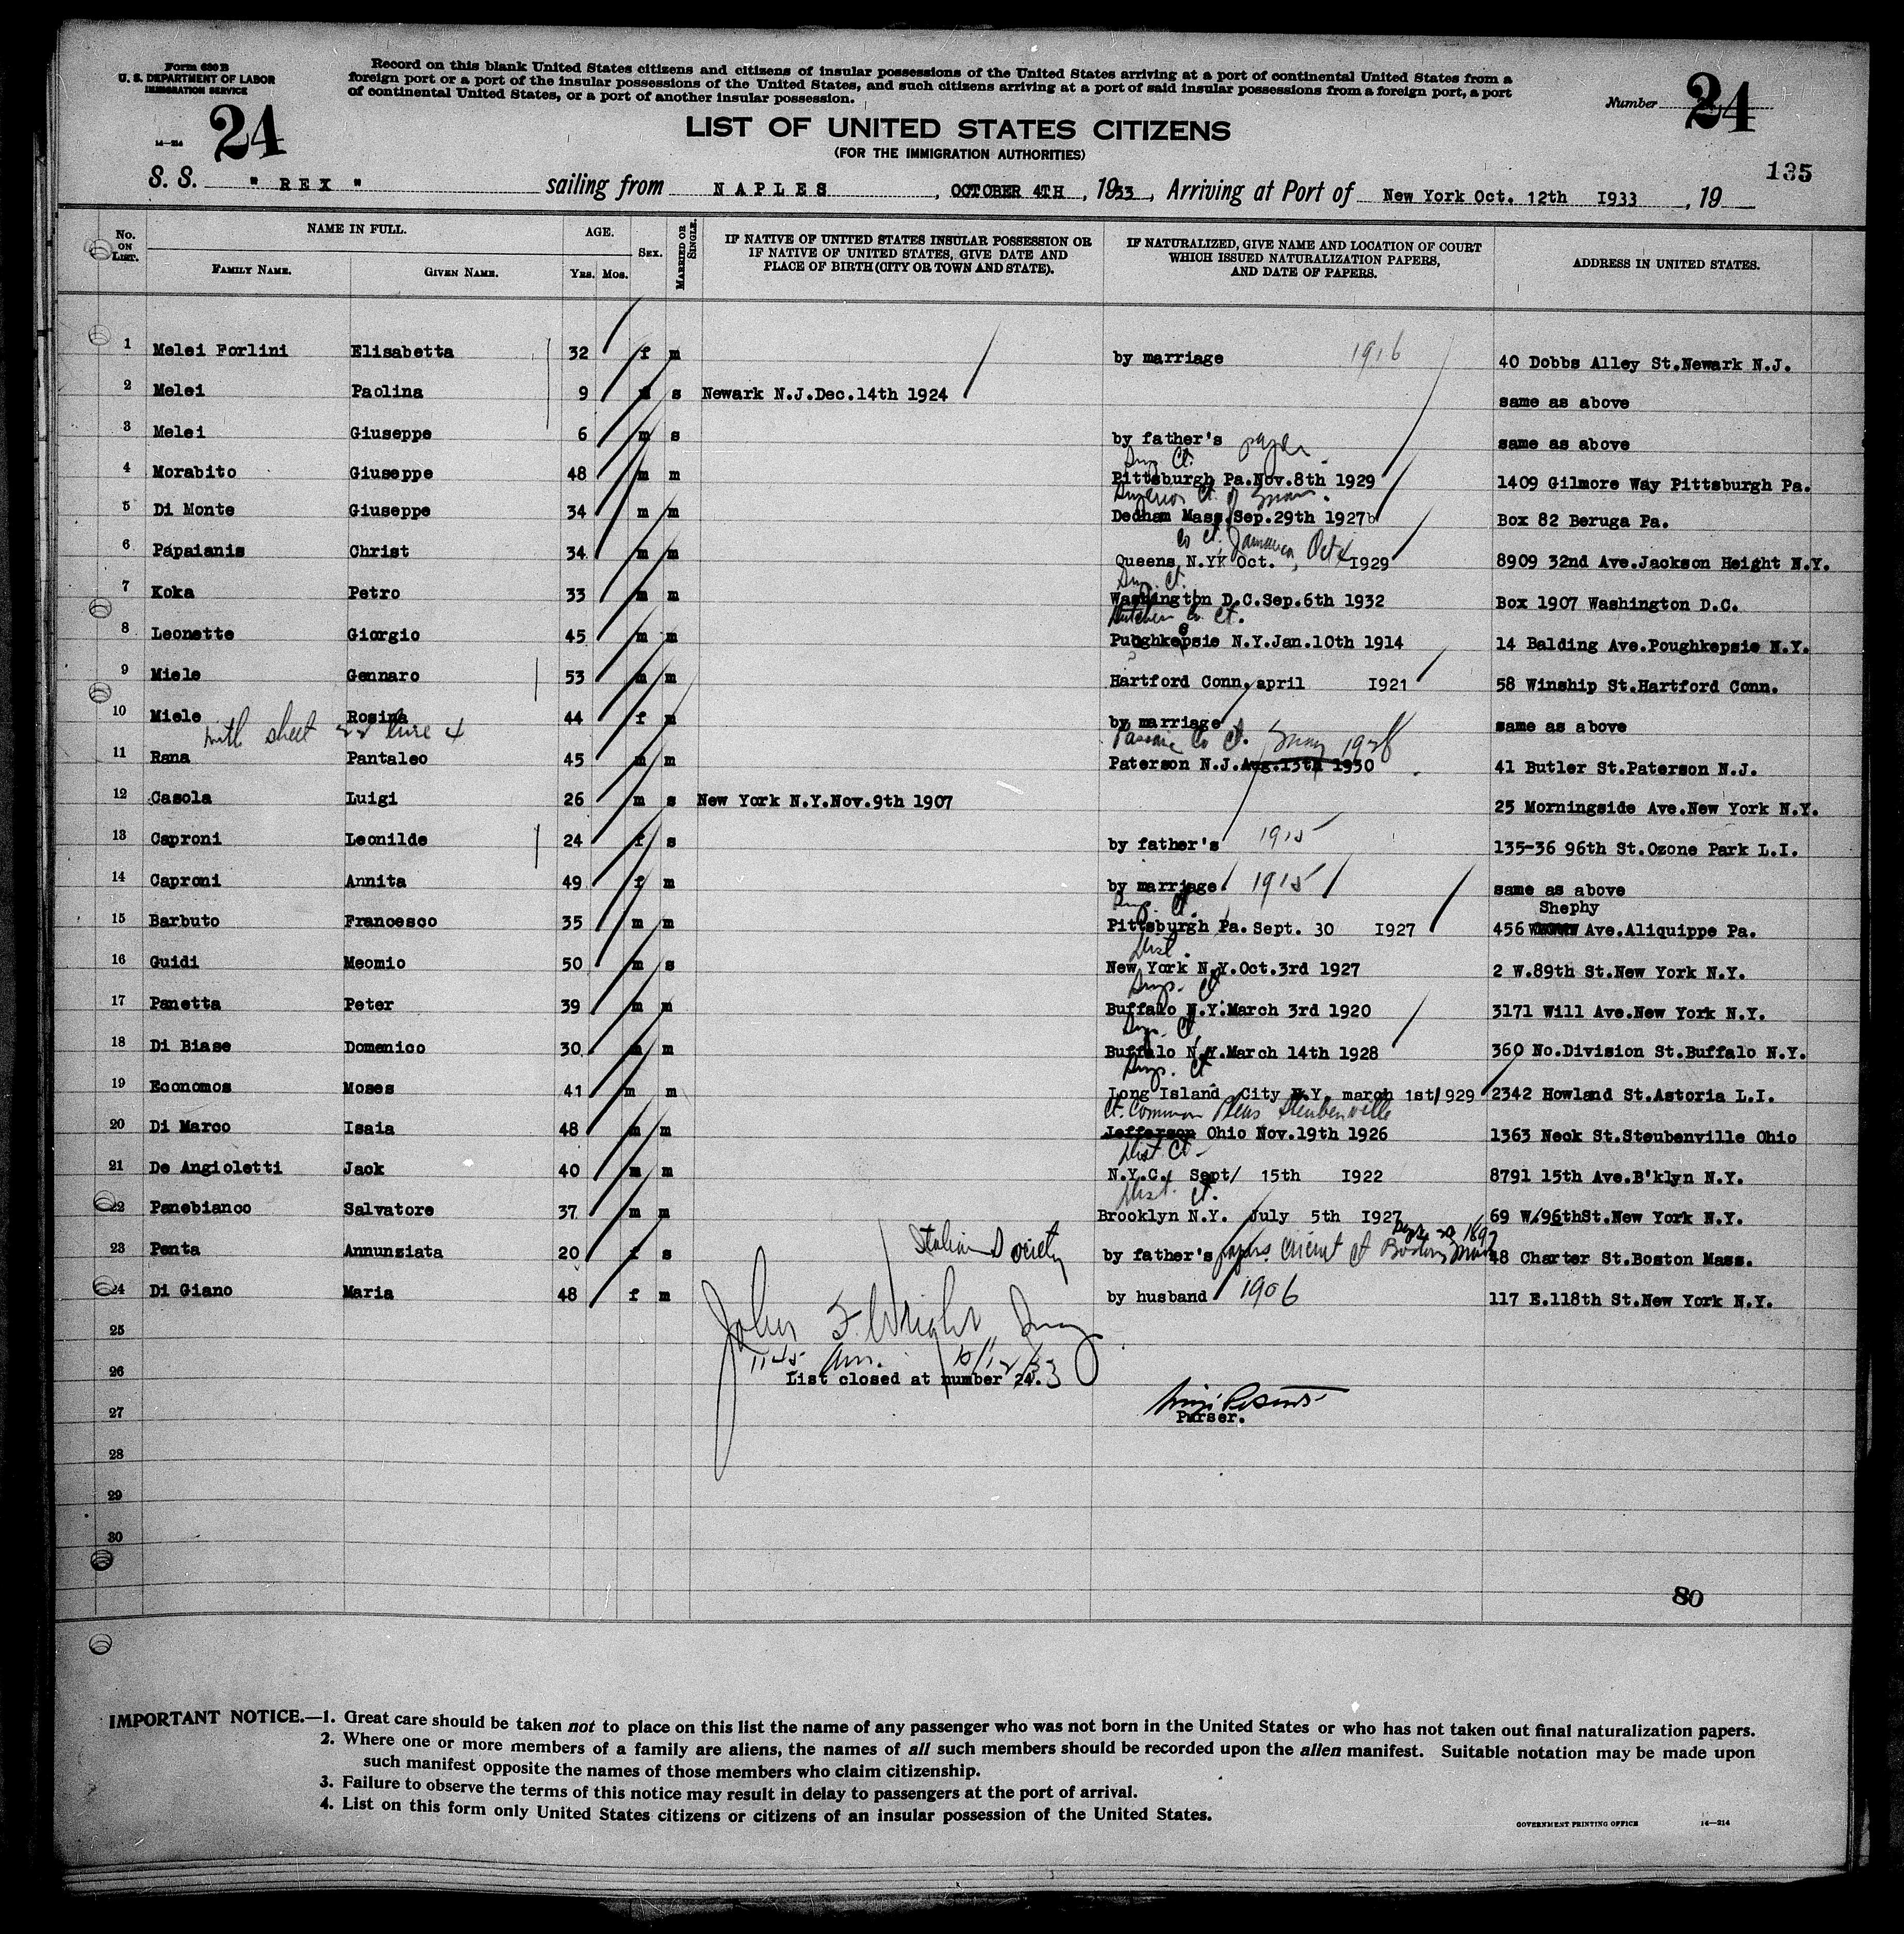 Form 630 B
U. S. DEPARTMENT OF LABOR
IMMIGRATION SERVICE
14—214
24
Record on this blank United States citizens and citizens of insular possessions of the United States arriving at a port of continental United States from a
foreign port or a port of the insular possessions of the United States, and such citizens arriving at a port of said insular possessions from a foreign port, a port
of continental United States, or a port of another insular possession.
Number 24
LIST OF UNITED STATES CITIZENS
(FOR THE IMMIGRATION AUTHORITIES)
135
S. S. " REX " sailing from NAPLES, OCTOBER 4TH, 1933, Arriving at Port of New York Oct. 12th I933, 19
No. ON LIST. NAME IN FULL. FAMILY NAME. GIVEN NAME. AGE. YRS. MOS. SEX. MARRIED OR SINGLE. IF NATIVE OF UNITED STATES INSULAR POSSESSION OR IF NATIVE OF UNITED STATES, GIVE DATE AND PLACE OF BIRTH (CITY OR TOWN AND STATE). IF NATURALIZED, GIVE NAME AND LOCATION OF COURT WHICH ISSUED NATURALIZATION PAPERS, AND DATE OF PAPERS. ADDRESS IN UNITED STATES.
1 Melei Forlini Elisabetta 32 f m by marriage 1916 40 Dobbs Alley St.Newark N.J.
2 Melei Paolina 9 s Newark N.J.Dec.14th 1924 same as above
3 Melei Giuseppe 6 m s by father's same as above
Sup. Ct.
4 Morabito Giuseppe 48 m m Pittsburgh Pa.Nov.8th 1929 1409 Gilmore Way Pittsburgh Pa.
Superior Ct. of
5 Di Monte Giuseppe 34 m m Dedham Mass.Sep.29th 1927 Box 82 Beruga Pa.
Co Ct. Jamaica, Oct
6 Papaianis Christ 34 m m Queens N.Y. Oct. I929 8909 32nd Ave.Jackson Height N.Y.
Sup. Ct.
7 Koka Petro 33 m m Washington D.C.Sep.6th 1932 Box 1907 Washington D.C.
Dutchess Co. Ct.
8 Leonette Giorgio 45 m m Poughkepsie N.Y.Jan.10th 1914 14 Balding Ave.Poughkepsie N.Y.
9 Miele Gennaro 53 m m Hartford Conn. april I921 58 Winship St.Hartford Conn.
10 Miele Rosina 44 f m by marriage same as above
with sheet 22 line 4 Passaic Co Ct. May 1926
11 Rana Pantaleo 45 m m Paterson N.J.Aug.13th 1930 41 Butler St.Paterson N.J.
12 Casola Luigi 26 m s New York N.Y.Nov.9th 1907 25 Morningside Ave.New York N.Y.
13 Caproni Leonilde 24 f s by father's 1915 135-36 96th St.Ozone Park L.I.
14 Caproni Annita 49 f m by marriage 1915 same as above
Sup. Ct. Shephy
15 Barbuto Francesco 35 m m Pittsburgh Pa. Sept. 30 I927 456 Ave.Aliquippe Pa.
Dist.
16 Guidi Meomio 50 m s New York N.Y.Oct.3rd 1927 2 W.89th St.New York N.Y.
Sup. Ct
17 Panetta Peter 39 m m Buffalo N.Y.March 3rd 1920 3171 Will Ave.New York N.Y.
Sup. Ct
18 Di Biase Domenico 30 m m Buffalo N.Y.March 14th 1928 360 No.Division St.Buffalo N.Y.
Sup. Ct
19 Economos Moses 41 m m Long Island City N.Y. march 1st/929 2342 Howland St.Astoria L.I.
Ct. Common Pleas Steubenville
20 Di Marco Isaia 48 m m Jefferson Ohio Nov.19th 1926 1363 Neck St.Steubenville Ohio
Dist Ct
21 De Angioletti Jack 40 m m N.Y.C. Sept/ 15th I922 8791 15th Ave.B'klyn N.Y.
Dist. Ct.
22 Panebianco Salvatore 37 m m Brooklyn N.Y. July 5th I927 69 W.96thSt.New York N.Y.
23 Penta Annunziata 20 f s Italian Society by father's papers Circuit Ct Boston Mass 1897 48 Charter St.Boston Mass.
24 Di Giano Maria 48 f m by husband 1906 117 E.118th St.New York N.Y.
25
John F. Wright Insp
1145 Am. 10/12/33
26 List closed at number 24.
27 Purser.
28
29
30
80
IMPORTANT NOTICE.—1. Great care should be taken not to place on this list the name of any passenger who was not born in the United States or who has not taken out final naturalization papers.
2. Where one or more members of a family are aliens, the names of all such members should be recorded upon the alien manifest. Suitable notation may be made upon
such manifest opposite the names of those members who claim citizenship.
3. Failure to observe the terms of this notice may result in delay to passengers at the port of arrival.
4. List on this form only United States citizens or citizens of an insular possession of the United States.
GOVERNMENT PRINTING OFFICE 14—214